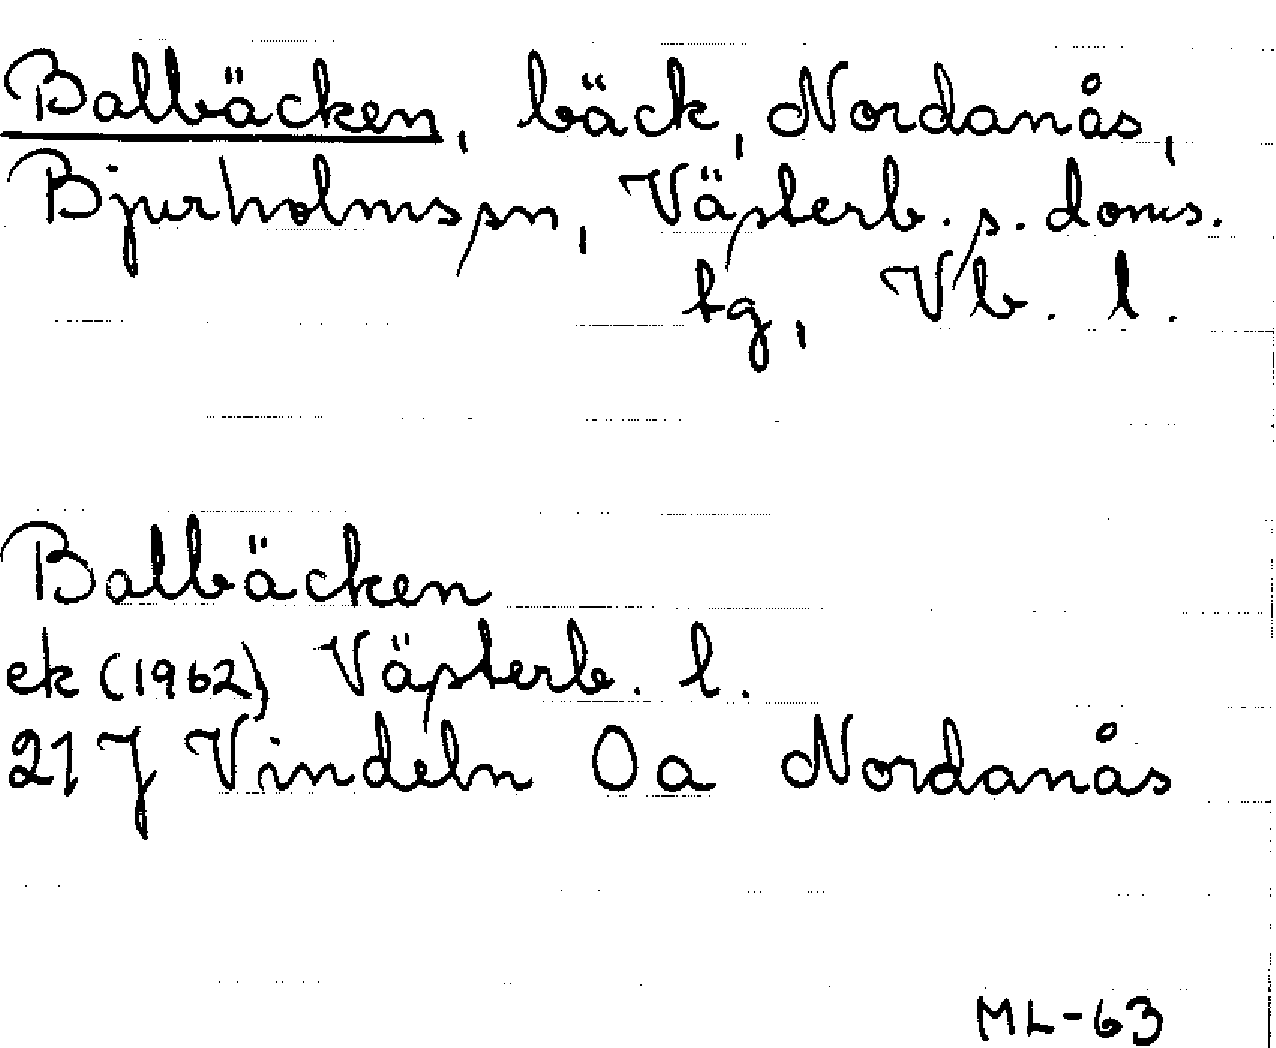 Balbäcken, bäck, Nordanås,
Bjurholms sn, Västerb. s. doms.
tg, Vb. l.
Balbäcken
ek (1962) Västerb. l.
21 J Vindeln 0a Nordanås
ML-63